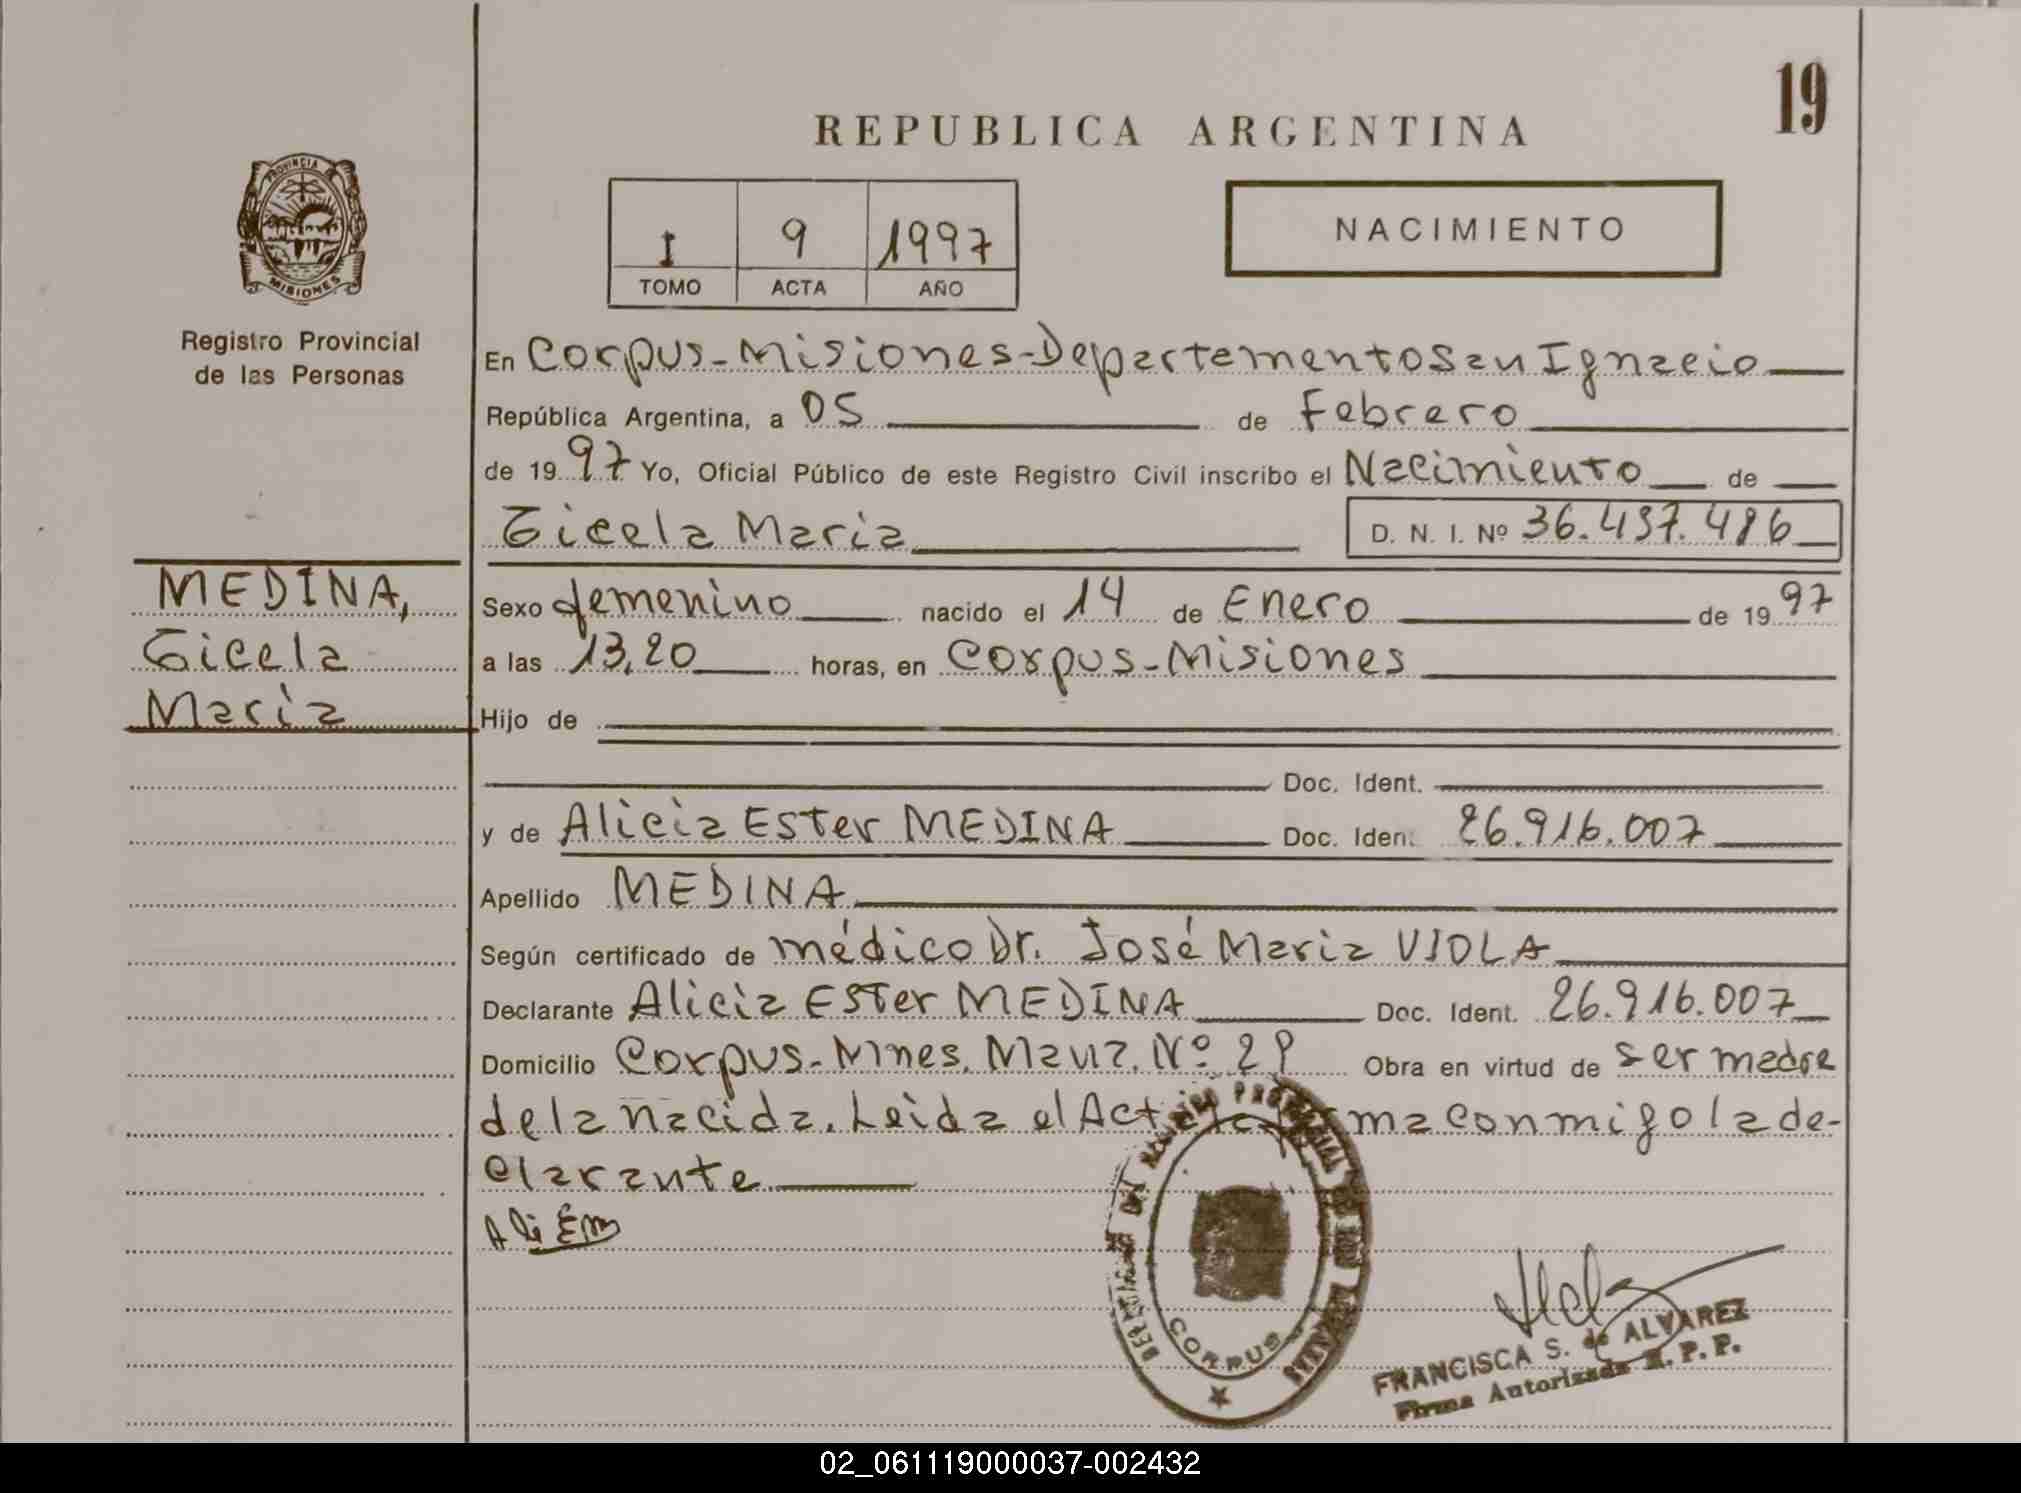 19
REPUBLICA ARGENTINA
PROVINCIA DE
MISIONES
Registro Provincial
de las Personas
I 9 1997
TOMO ACTA AÑO
NACIMIENTO
En Corpus-Misiones-Departamento San Ignacio
República Argentina, a 05 de Febrero
de 1997 Yo, Oficial Público de este Registro Civil inscribo el Nacimiento de
Gicela Maria D. N. I. Nº 36.457.486
MEDINA,
Gicela
Maria
Sexo femenino nacido el 14 de Enero de 1997
a las 13,20 horas, en Corpus-Misiones
Hijo de
Doc. Ident.
y de Alicia Ester MEDINA Doc. Iden. 26.916.007
Apellido MEDINA
Según certificado de médico Dr. José Maria VIOLA
Declarante Alicia Ester MEDINA Doc. Ident. 26.916.007
Domicilio Corpus-Mnes. Manz. Nº 29 Obra en virtud de ser madre
de la nacida. Leida el Acta conmigo la de-
clarante
Ali EM
CORPUS
FRANCISCA S. de ALVAREZ
Firma Autorizada R. P. P.
02_061119000037-002432